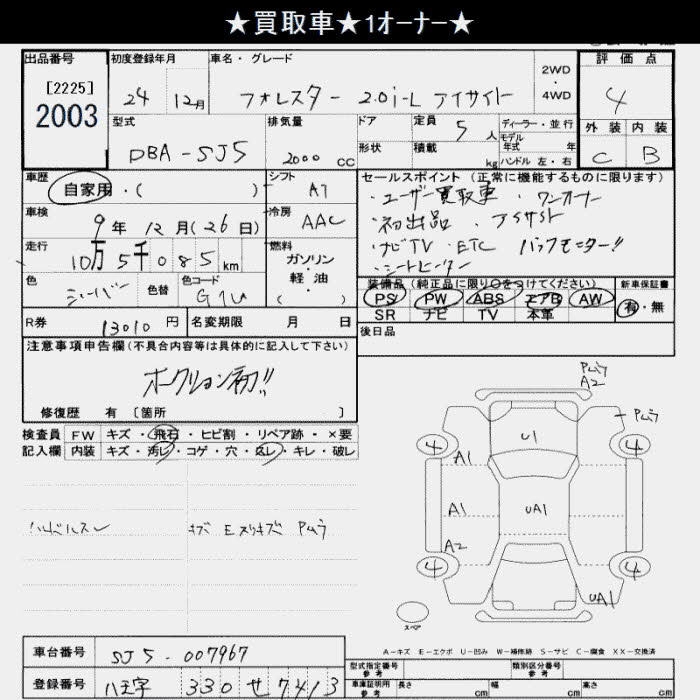 ★買取車★1オーナー★
出品番号 初度登録年月 車名・グレード 評価点
[2225] 2WD ・ 4WD
2003 24 12月 フォレスター 2.0i-L アイサイト 4
型式 排気量 ドア 定員 5人 ディーラー・並行 外装 内装
モデル年式 年
DBA-SJ5 2000 CC 形状 積載 kg ハンドル 左・右 C B
車歴 自家用・( ) シフト AT セールスポイント (正常に機能するものに限ります)
・ユーザー買取車 ・ワンオーナー
車検 9年 12月(26日) 冷房 AAC ・初出品 ・アイサイト
走行 10万5千085km 燃料 ガソリン・軽油 ( ) ・ナビTV ・ETC バックモニター!!
・シートヒーター
色 シルバー 色替 色コード G1U 装備品 (純正品に限り○をつけてください) 新車保証書
PS PW ABS エアB AW 有・無
R券 13010円 名変期限 月 日 SR ナビ TV 本革
注意事項申告欄(不具合内容等は具体的に記入して下さい) 後日品
オークション初!!
修復歴 有 [箇所 ]
検査員 FW キズ・飛石・ヒビ割・リペア跡・×要
記入欄 内装 キズ・汚レ・コゲ・穴・スレ・キレ・破レ
Pムラ
A2
Pムラ
4 U1 4
A1
A1 UA1
A2
4 4
UA1
ハンドルスレ キズ Eスリキズ Pムラ
スペア
A-キズ E-エクボ U-凹み W-補修跡 S-サビ C-腐食 XX-交換済
車台番号 SJ5-007967
型式指定番号 参考 類別区分番号 参考
登録番号 八王子 330 せ 7413
車庫証明用 参考 長さ cm 幅 cm 高さ cm